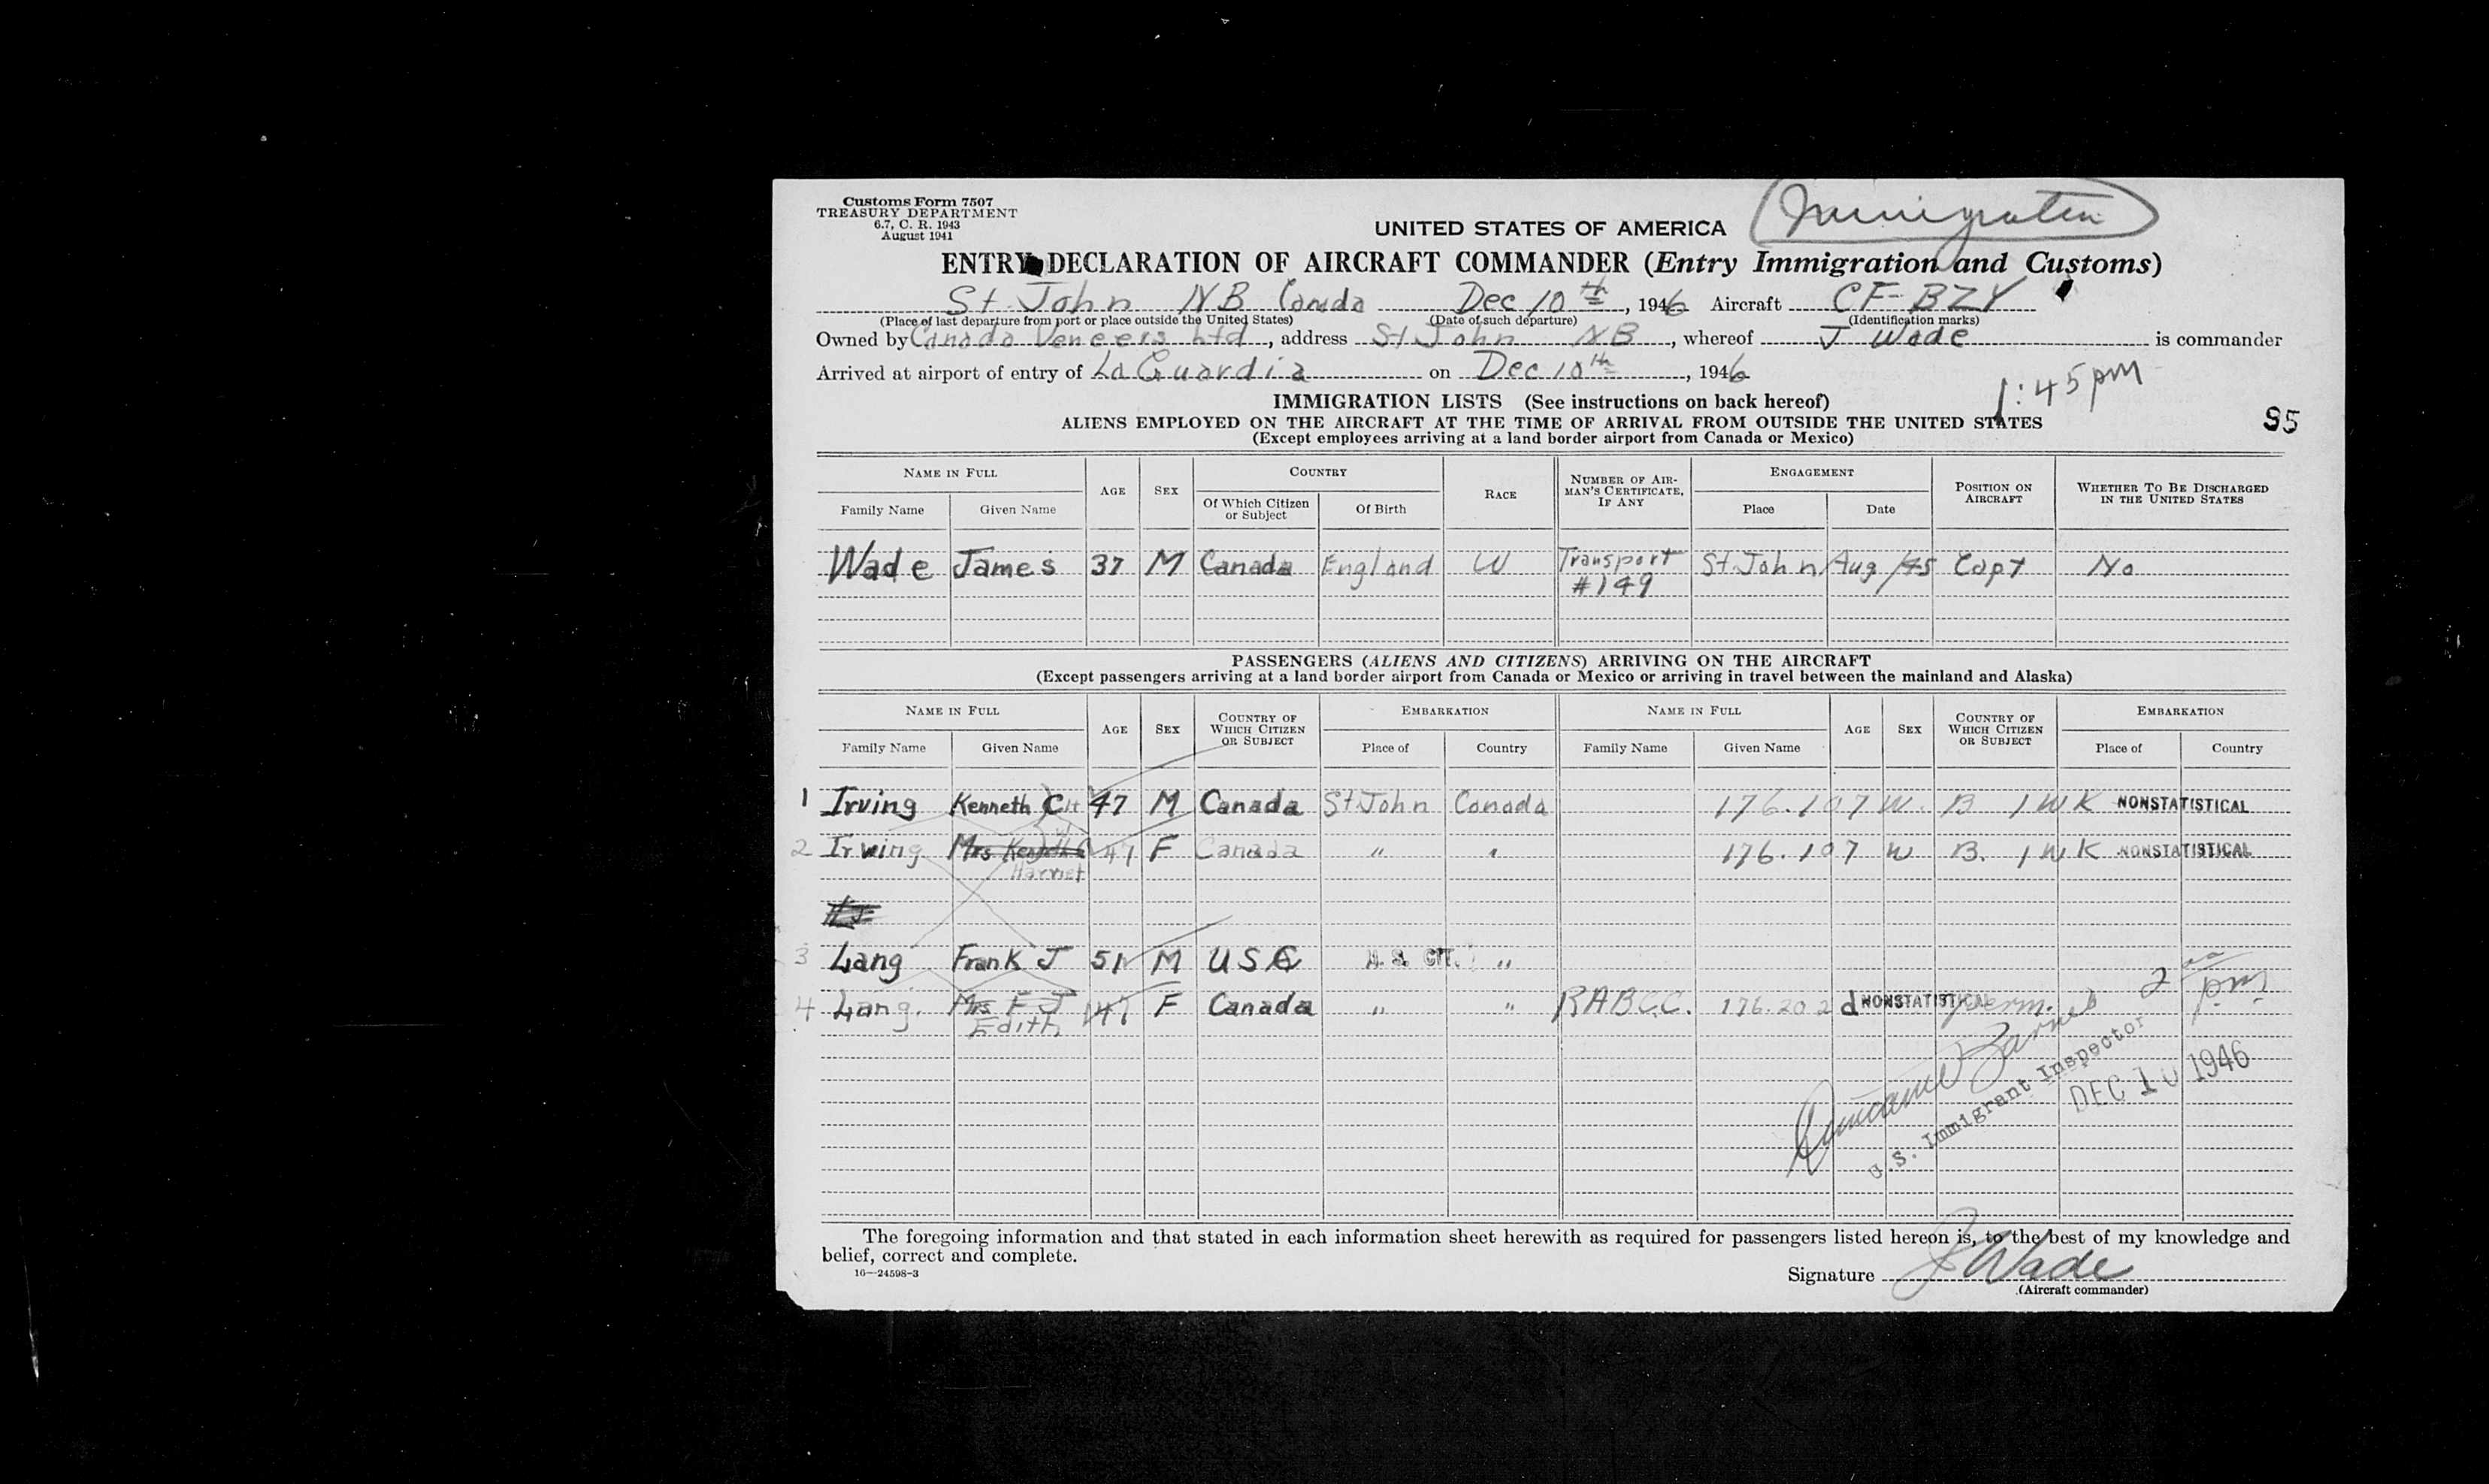 Customs Form 7507
TREASURY DEPARTMENT
6.7, C. R. 1943
August 1941
Immigration
UNITED STATES OF AMERICA
ENTRY DECLARATION OF AIRCRAFT COMMANDER (Entry Immigration and Customs)
St. John NB Canada Dec 10th, 1946 Aircraft CF-BZY
(Place of last departure from port or place outside the United States) (Date of such departure) (Identification marks)
Owned by Canada Veneers Ltd, address St John NB, whereof J Wade is commander
Arrived at airport of entry of La Guardia on Dec 10th, 1946
1:45 pm
IMMIGRATION LISTS (See instructions on back hereof)
ALIENS EMPLOYED ON THE AIRCRAFT AT THE TIME OF ARRIVAL FROM OUTSIDE THE UNITED STATES
(Except employees arriving at a land border airport from Canada or Mexico)
NAME IN FULL AGE SEX COUNTRY RACE NUMBER OF AIRMAN'S CERTIFICATE, IF ANY ENGAGEMENT POSITION ON AIRCRAFT WHETHER TO BE DISCHARGED IN THE UNITED STATES
Family Name Given Name Of Which Citizen or Subject Of Birth Place Date
Wade James 37 M Canada England W Transport #149 St John Aug/45 Capt No
PASSENGERS (ALIENS AND CITIZENS) ARRIVING ON THE AIRCRAFT
(Except passengers arriving at a land border airport from Canada or Mexico or arriving in travel between the mainland and Alaska)
NAME IN FULL AGE SEX COUNTRY OF WHICH CITIZEN OR SUBJECT EMBARKATION NAME IN FULL AGE SEX COUNTRY OF WHICH CITIZEN OR SUBJECT EMBARKATION
Family Name Given Name Place of Country Family Name Given Name Place of Country
1 Irving Kenneth C 47 M Canada St John Canada 176.107 W. B 1 WK NONSTATISTICAL
2 Irving Mrs Kenneth C 47 F Canada " " 176.107 W B. 1 WK NONSTATISTICAL
Harriet
3 Lang Frank J 51 M USC U.S. CIT. "
4 Lang. Mrs F J 47 F Canada " " RABCC. 176.202 d NONSTATISTICAL perm.
Edith
2 pm
Barnes
U.S. Immigrant Inspector
DEC 10 1946
The foregoing information and that stated in each information sheet herewith as required for passengers listed hereon is, to the best of my knowledge and
belief, correct and complete.
16—24598-3
Signature J Wade
(Aircraft commander)